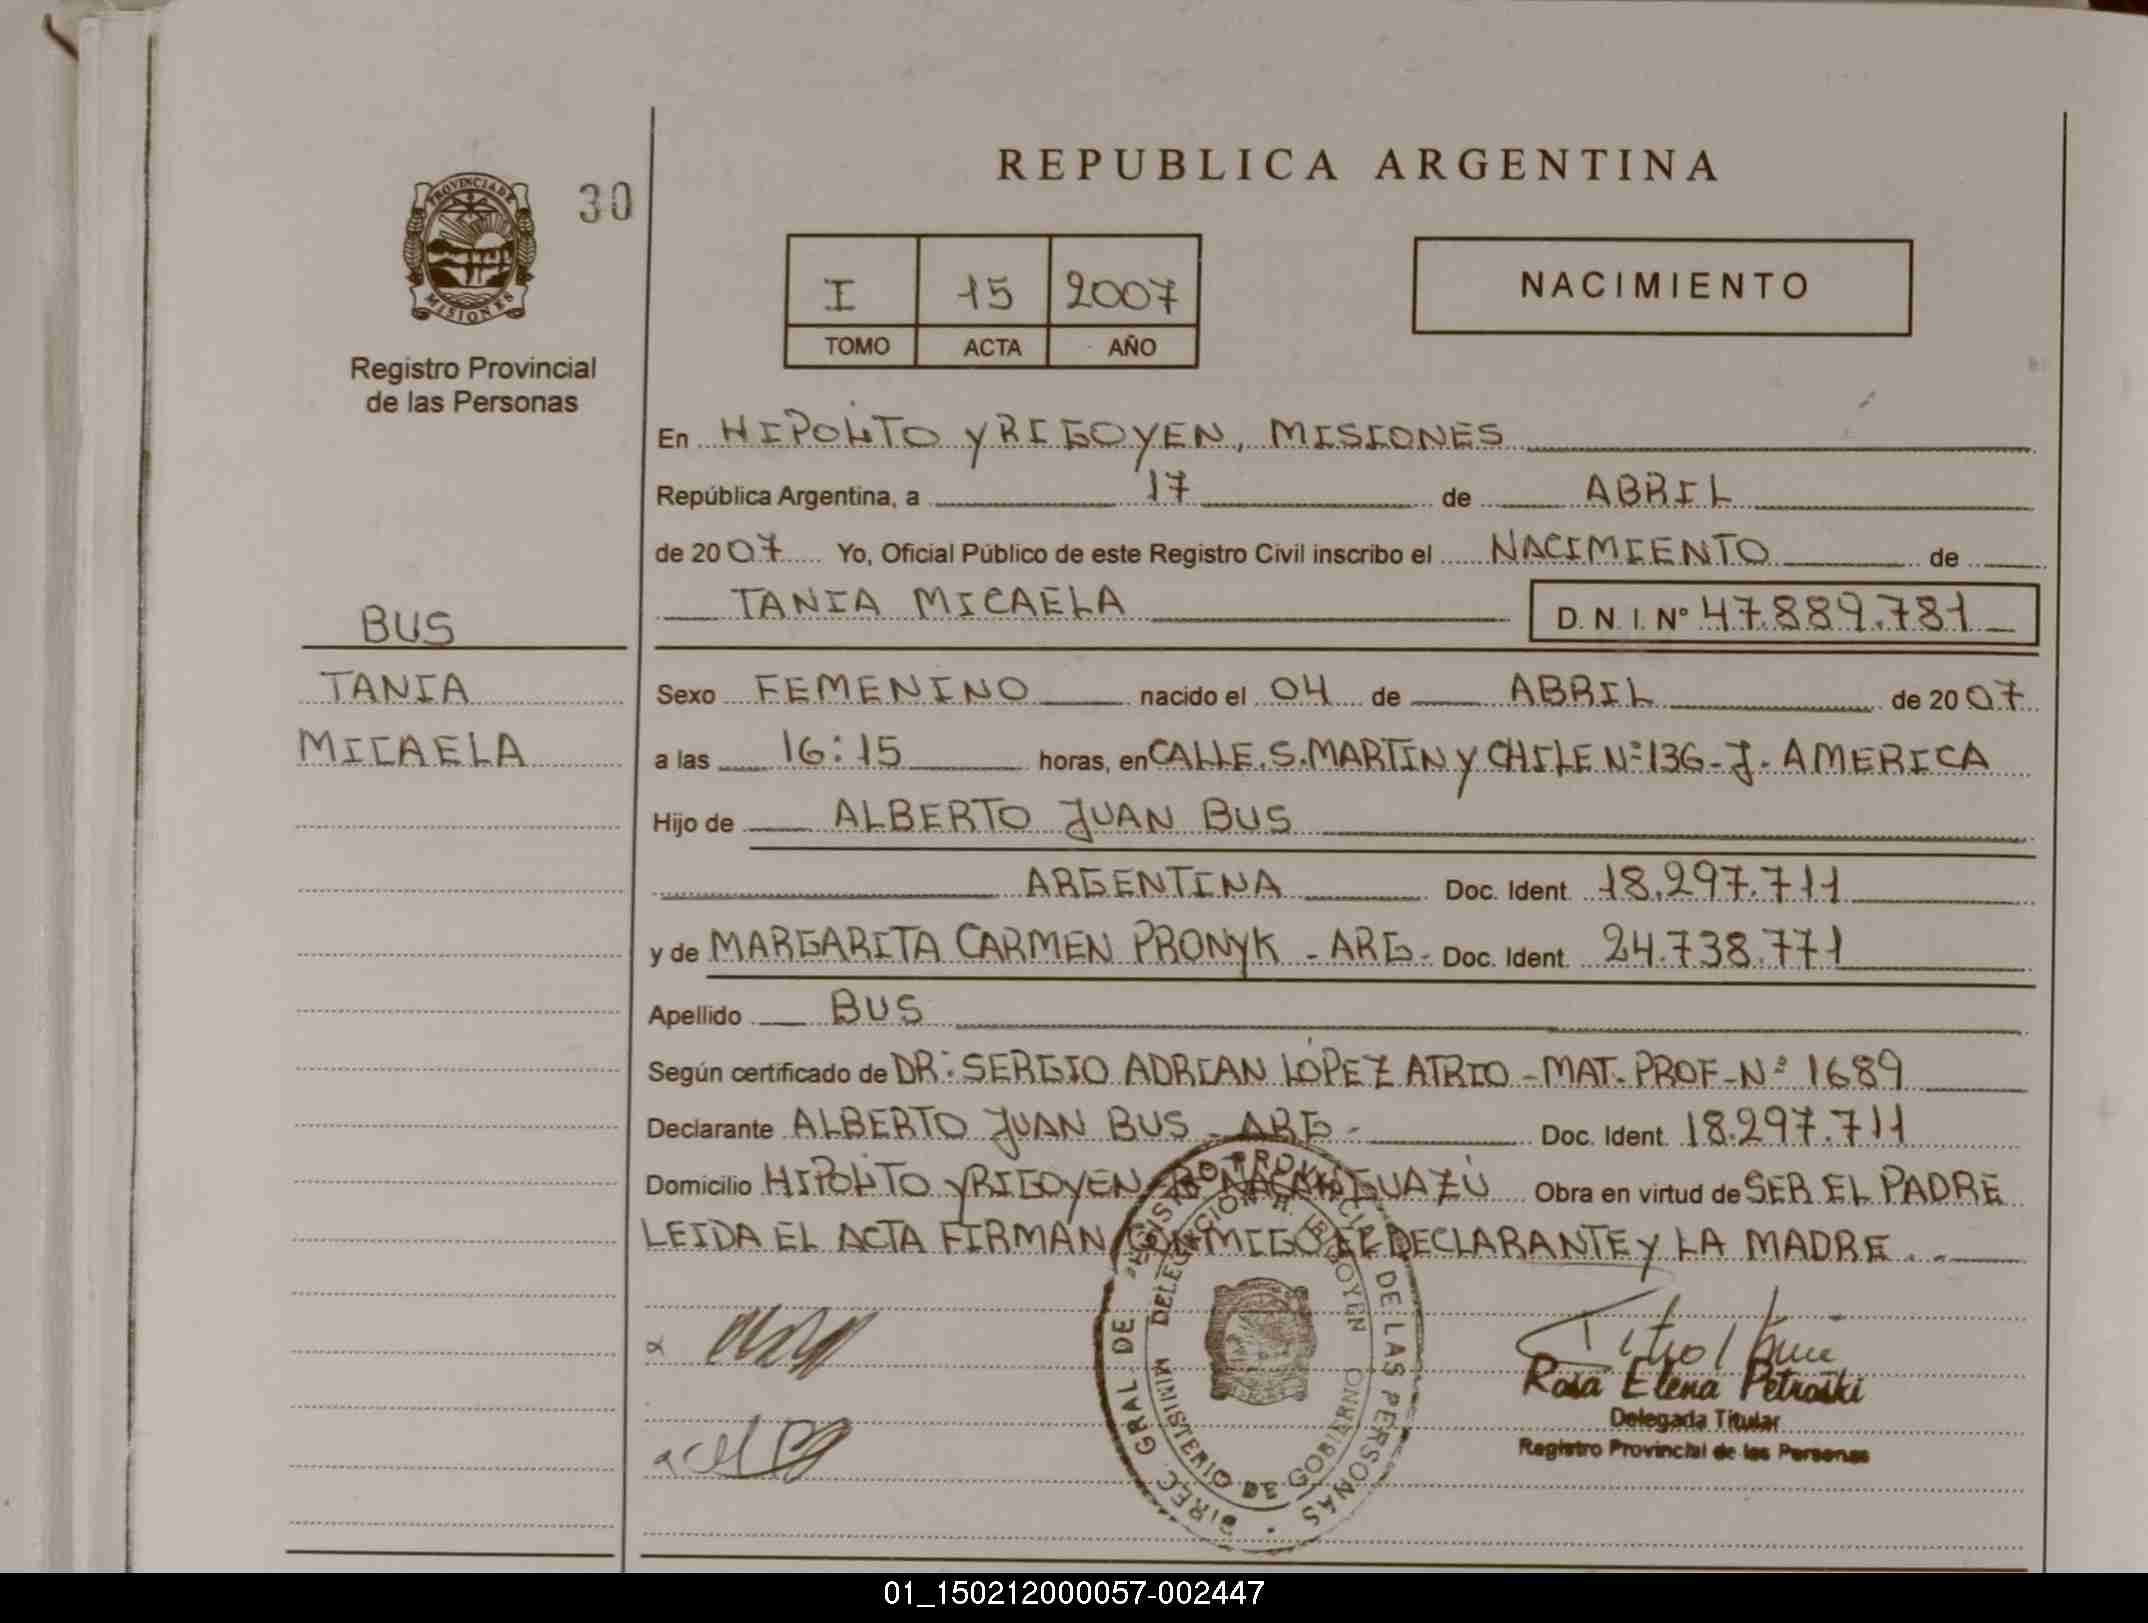 REPUBLICA ARGENTINA
PROVINCIA DE
MISIONES
30
Registro Provincial
de las Personas
I 15 2007
TOMO ACTA AÑO
NACIMIENTO
En HIPOLITO YRIGOYEN, MISIONES
República Argentina, a 17 de ABRIL
de 2007 Yo, Oficial Público de este Registro Civil inscribo el NACIMIENTO de
TANIA MICAELA D. N. I. Nº 47.889.781
BUS
TANIA
MICAELA
Sexo FEMENINO nacido el 04 de ABRIL de 2007
a las 16:15 horas, en CALLE.S.MARTIN Y CHILE Nº136-J. AMERICA
Hijo de ALBERTO JUAN BUS
ARGENTINA Doc. Ident. 18.297.711
y de MARGARITA CARMEN PRONYK - ARG. Doc. Ident. 24.738.771
Apellido BUS
Según certificado de DR: SERGIO ADRIAN LÓPEZ ATRIO - MAT. PROF-Nº 1689
Declarante ALBERTO JUAN BUS - ARG - Doc. Ident. 18.297.711
Domicilio HIPOLITO YRIGOYEN Obra en virtud de SER EL PADRE
LEIDA EL ACTA FIRMAN CONMIGO EL DECLARANTE Y LA MADRE.
DIREC. GRAL. DE REGISTRO PROVINCIAL DE LAS PERSONAS
DELEGACION H. IRIGOYEN
MINISTERIO DE GOBIERNO
Rosa Elena Petroski
Delegada Titular
Registro Provincial de las Personas
01_150212000057-002447